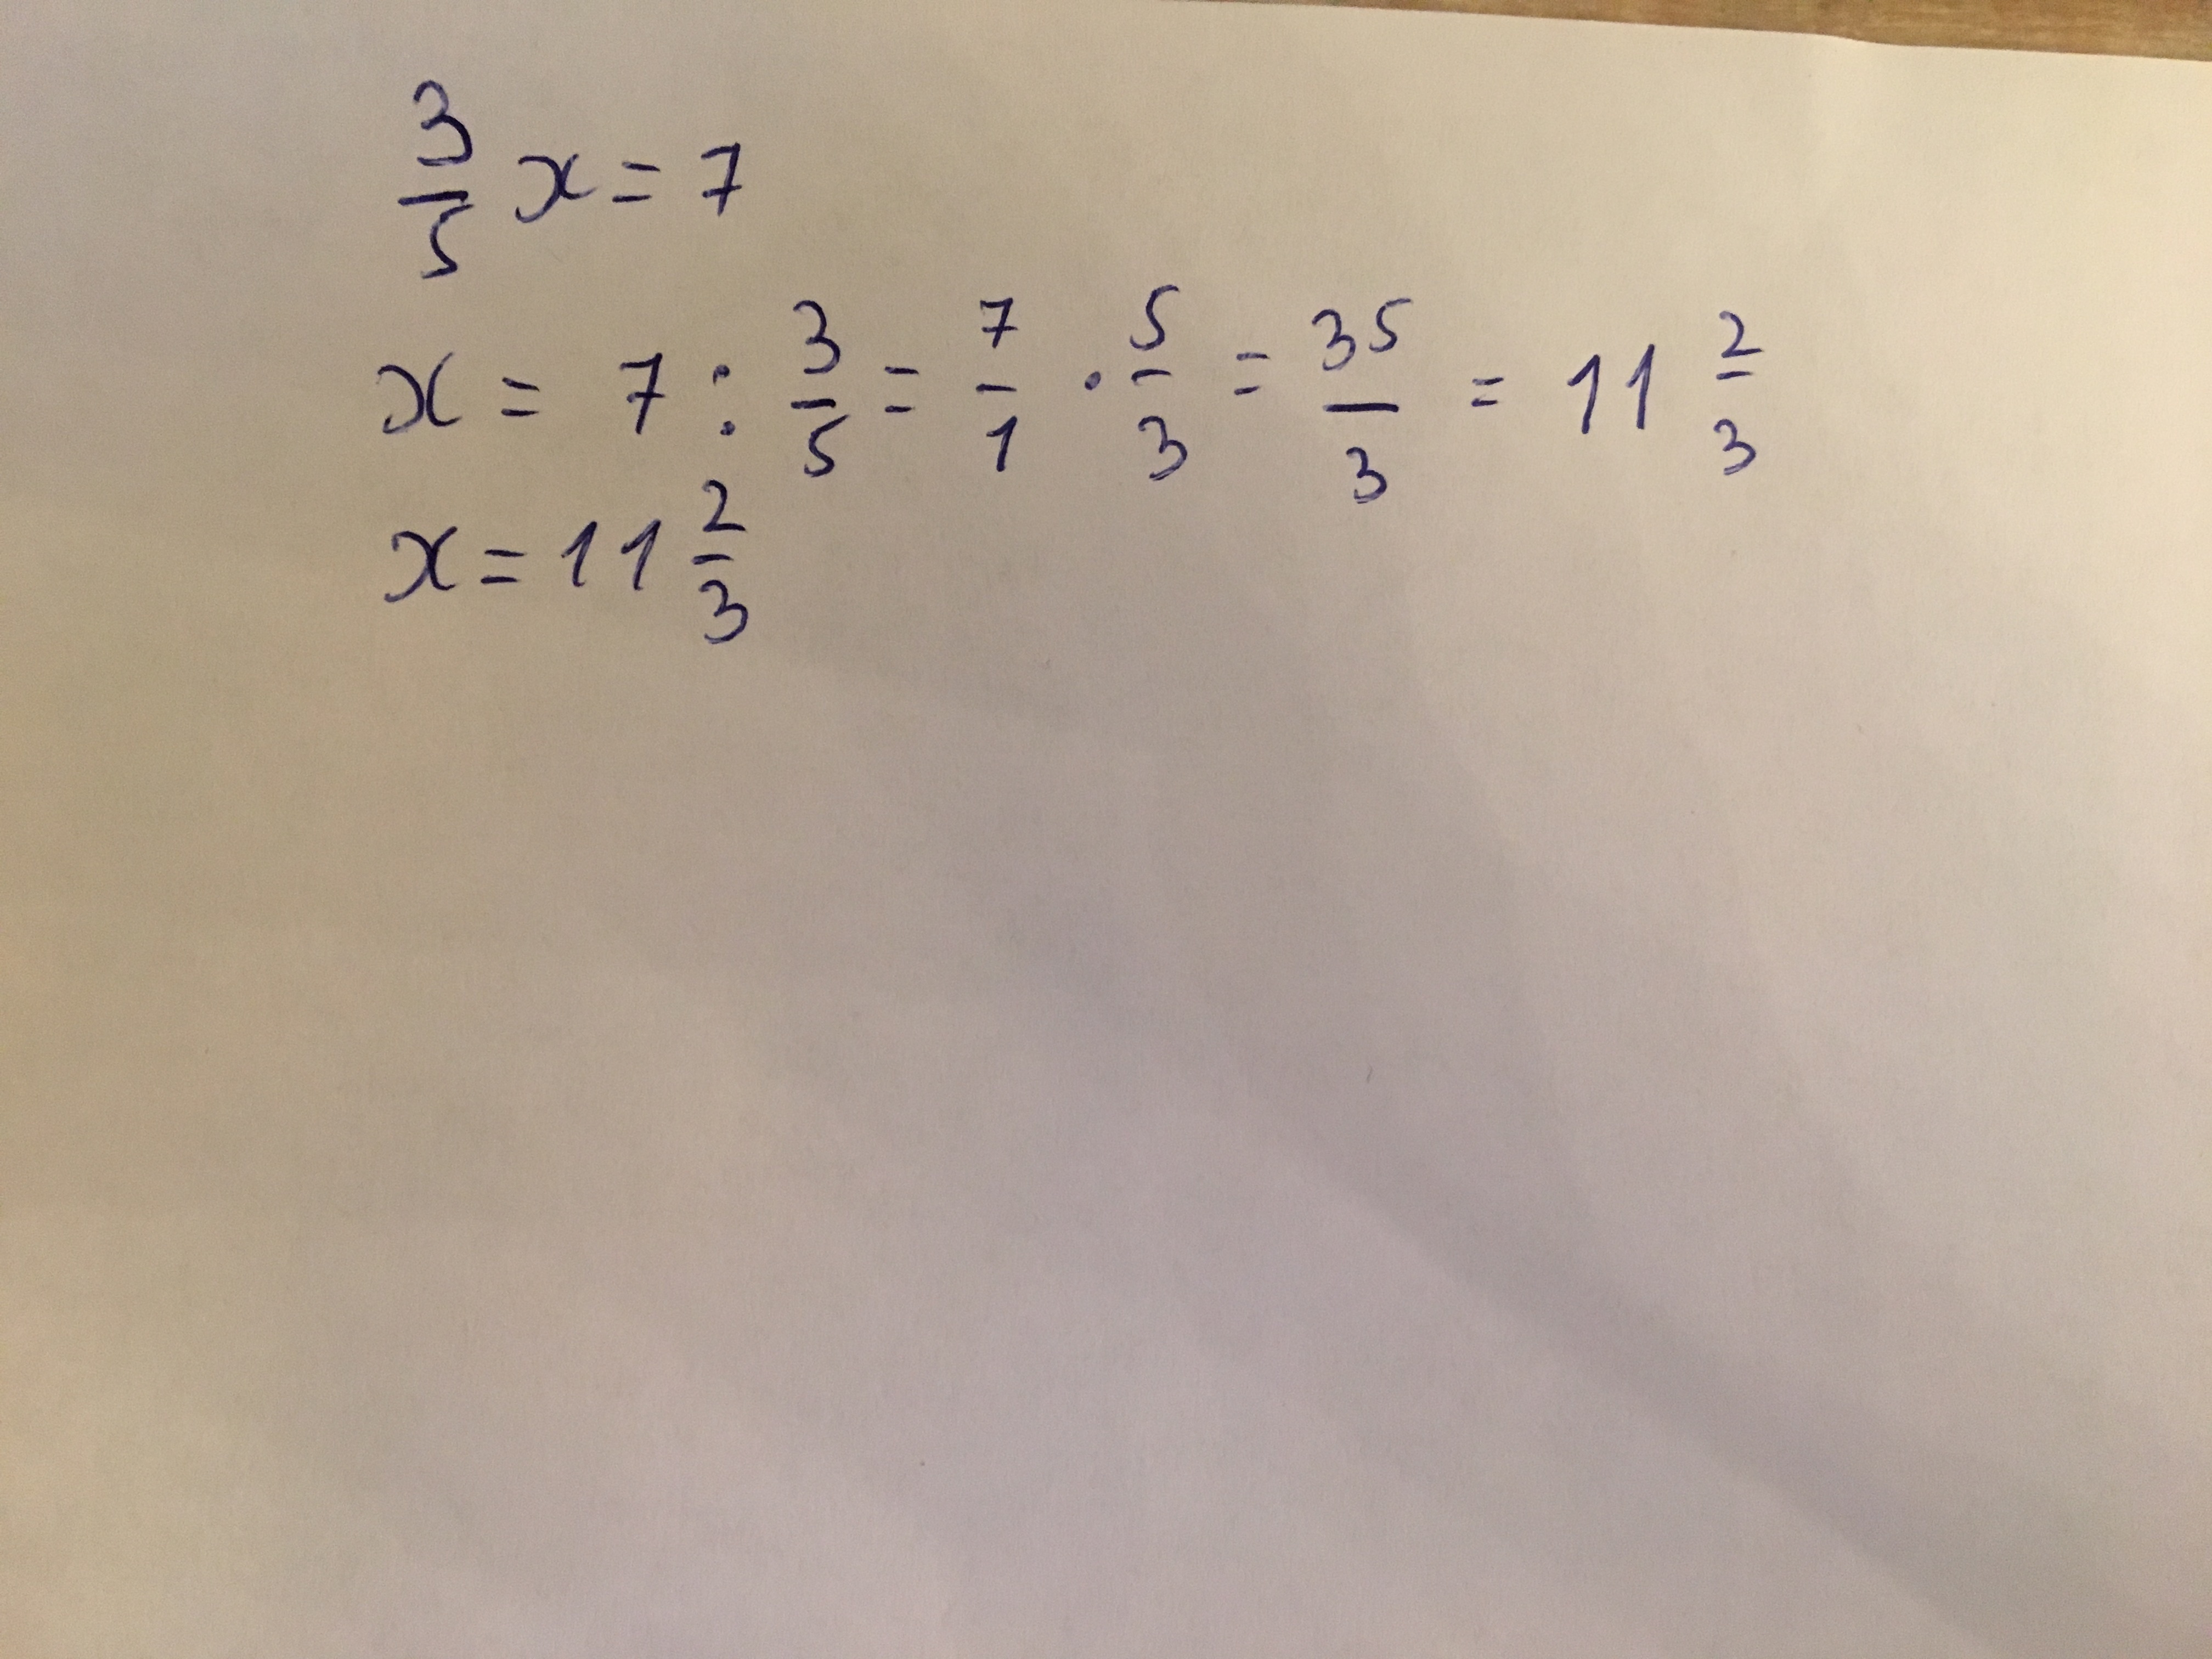 3/5 x = 7
x = 7 : 3/5 = 7/1 · 5/3 = 35/3 = 11 2/3
x = 11 2/3